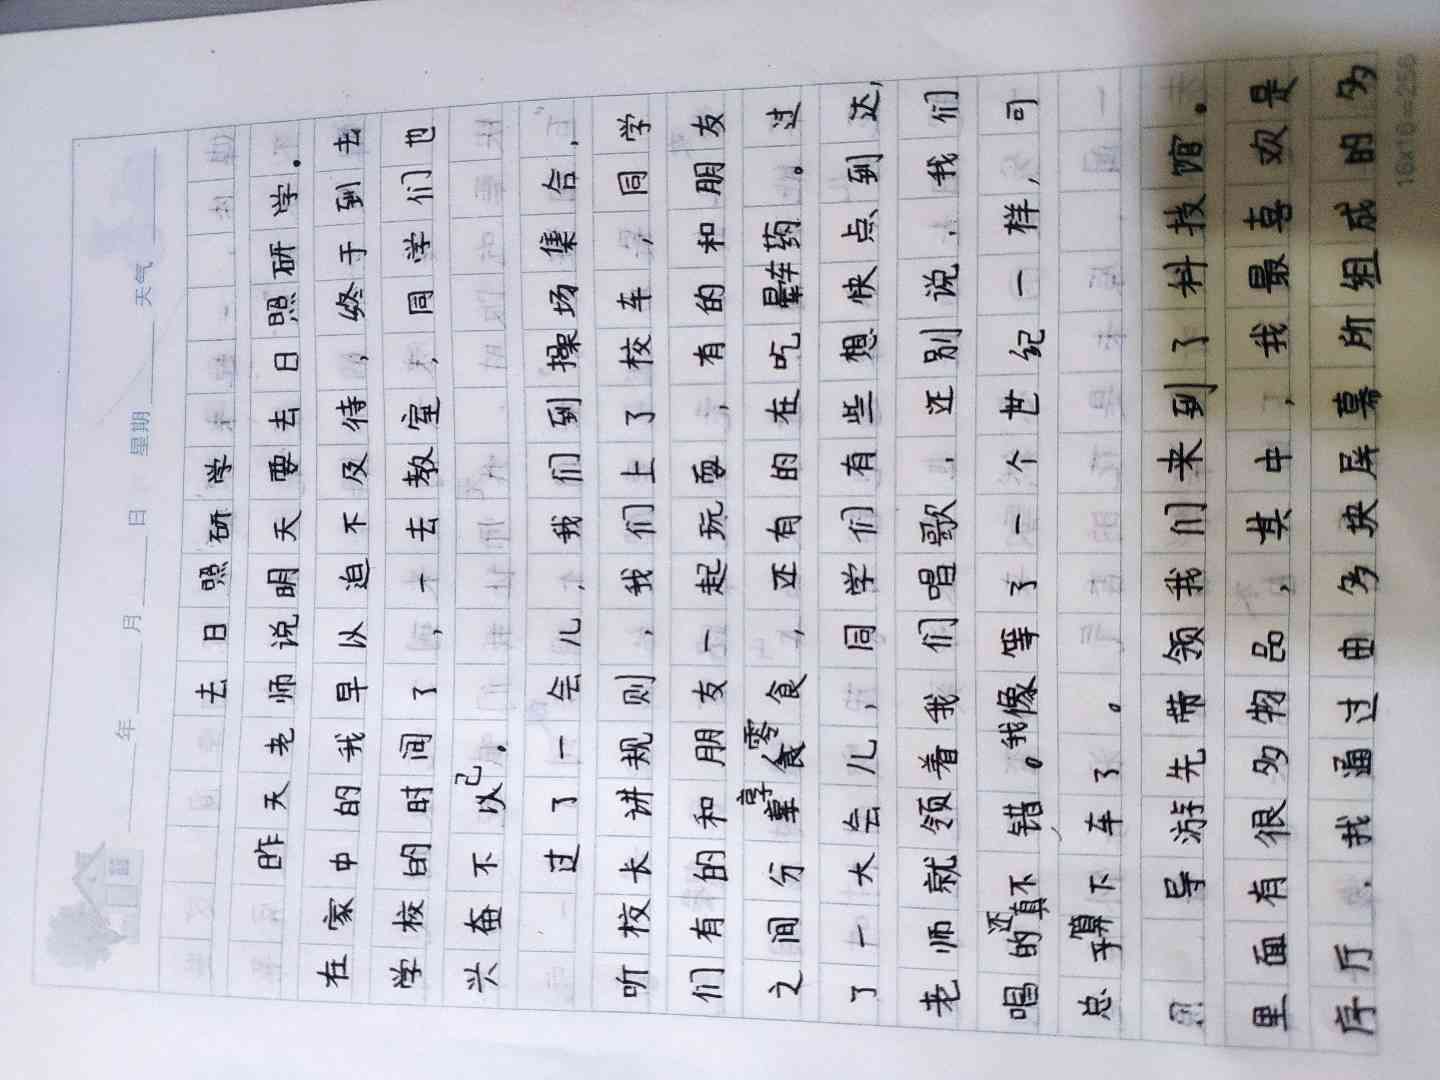 年 月 日 星期 天气
去日照研学
昨天老师说明天要去日照研学。
在家中的我早以迫不及待,终于到去
学校的时间了,一去教室,同学们也
兴奋不以己。
过了一会儿,我们到操场集合,
听校长讲规则,我们上了校车,同学
们有的和朋友一起玩耍,有的和朋友
之间分享零食,还有的在吃晕车药。过
了一大会儿,同学们有些想快点到达,
老师就领着我们唱歌,还别说,我们
唱的还真不错。我像等了一个世纪一样,可
总算下车了。
导游先带领我们来到了科技馆。
里面有很多物品,其中,我最喜欢是
序厅,我通过由多块屏幕所组成的多
16x16=256